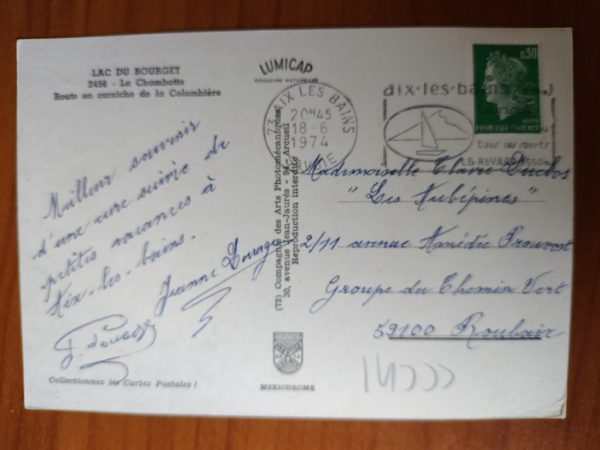 LAC DU BOURGET
2456 - La Chambotte
Route en corniche de la Colombière
LUMICAP
COULEURS NATURELLES
Meilleur souvenir
d'une cure suivie de
petites vacances à
Aix-les-bains.
Jeanne
Collectionnez les Cartes Postales !
(72) Compagnie des Arts Photomécaniques
30, avenue Jean-Jaurès - 94 - Arcueil
Reproduction interdite
MEXICHROME
73 AIX LES BAINS
20H45
18-6
1974
SAVOIE
0,30
aix-les-bains
tous les sports
& REVARD 1550m
Mademoiselle Claire Duclos
"Les Aubépines"
2/11 avenue Amédée Prouvost
Groupe du Chemin Vert
59100 Roubaix